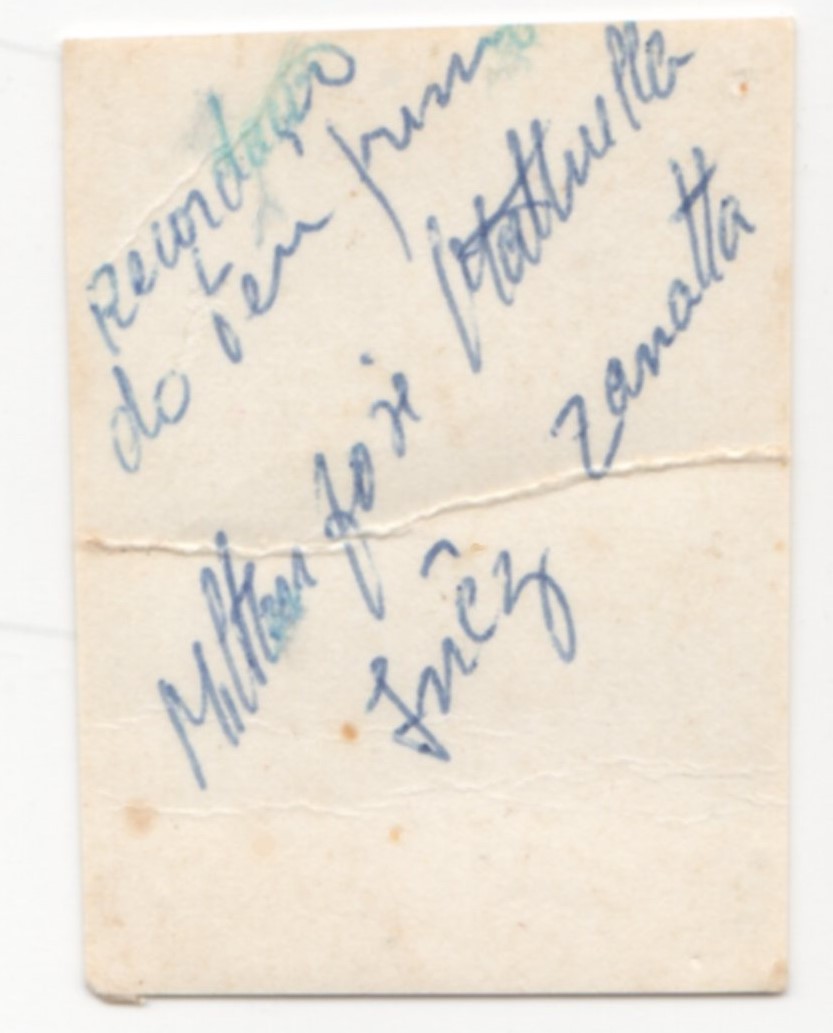 Recordação
do seu primo
Milton José Mattuella
Inêz Zanatta